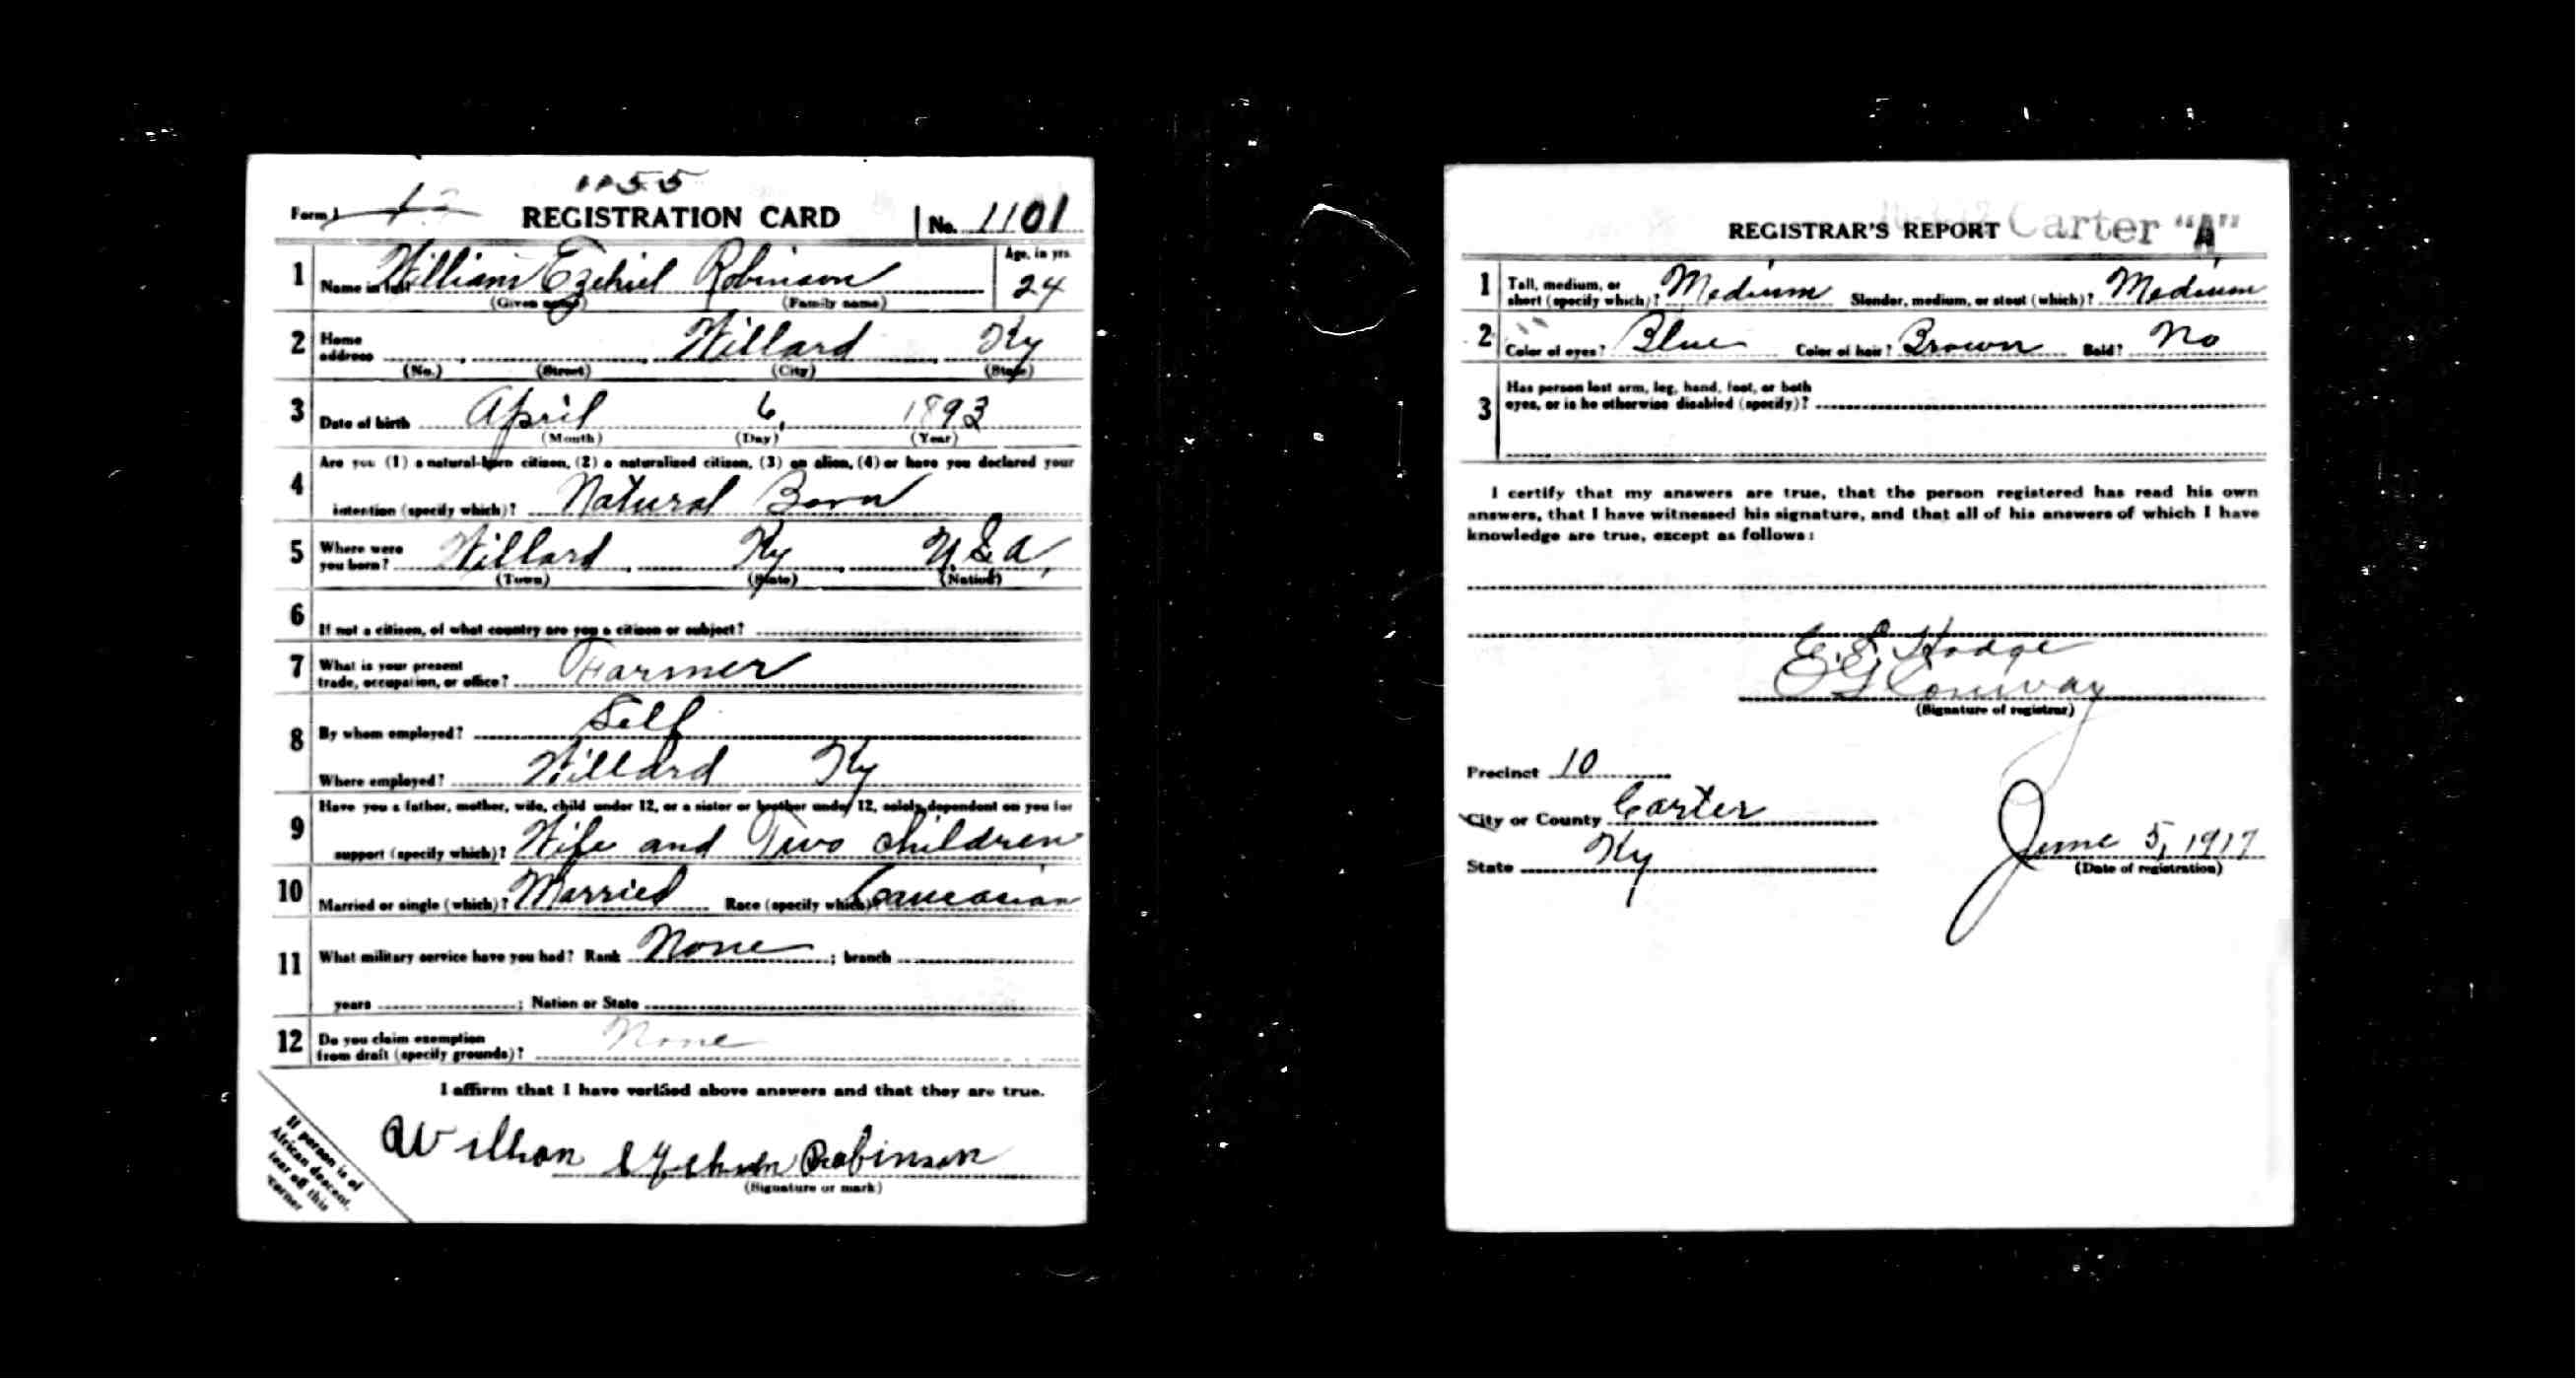 1155
Form 1 REGISTRATION CARD No. 1101
1 Name in full William Ezehiel Robinson Age, in yrs. 24
(Given name) (Family name)
2 Home address Willard Ky
(No.) (Street) (City) (State)
3 Date of birth April 6, 1893
(Month) (Day) (Year)
4 Are you (1) a natural-born citizen, (2) a naturalized citizen, (3) an alien, (4) or have you declared your
intention (specify which)? Natural Born
5 Where were you born? Willard Ky U.S.A.
(Town) (State) (Nation)
6 If not a citizen, of what country are you a citizen or subject?
7 What is your present
trade, occupation, or office? Farmer
8 By whom employed? Self
Where employed? Willard Ky
9 Have you a father, mother, wife, child under 12, or a sister or brother under 12, solely dependent on you for
support (specify which)? Wife and Two children
10 Married or single (which)? Married Race (specify which)? Caucasian
11 What military service have you had? Rank None ; branch
years ; Nation or State
12 Do you claim exemption
from draft (specify grounds)? None
I affirm that I have verified above answers and that they are true.
Robinson
(Signature or mark)
If person is of
African descent,
tear off this
corner
REGISTRAR'S REPORT Carter "A"
1 Tall, medium, or
short (specify which)? Medium Slender, medium, or stout (which)? Medium
2 Color of eyes? Blue Color of hair? Brown Bald? No
3 Has person lost arm, leg, hand, foot, or both
eyes, or is he otherwise disabled (specify)?
I certify that my answers are true, that the person registered has read his own
answers, that I have witnessed his signature, and that all of his answers of which I have
knowledge are true, except as follows:
E.E. Hodge
E G Conway
(Signature of registrar)
Precinct 10
City or County Carter
State Ky
June 5, 1917
(Date of registration)